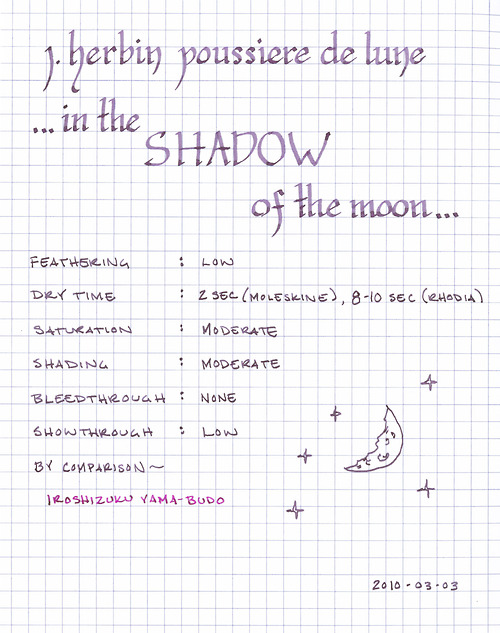 j. herbin poussiere de lune
... in the
SHADOW
of the moon...
FEATHERING : LOW
DRY TIME : 2 SEC (MOLESKINE), 8-10 SEC (RHODIA)
SATURATION : MODERATE
SHADING : MODERATE
BLEEDTHROUGH : NONE
SHOWTHROUGH : LOW
BY COMPARISON ~
IROSHIZUKU YAMA-BUDO
2010-03-03